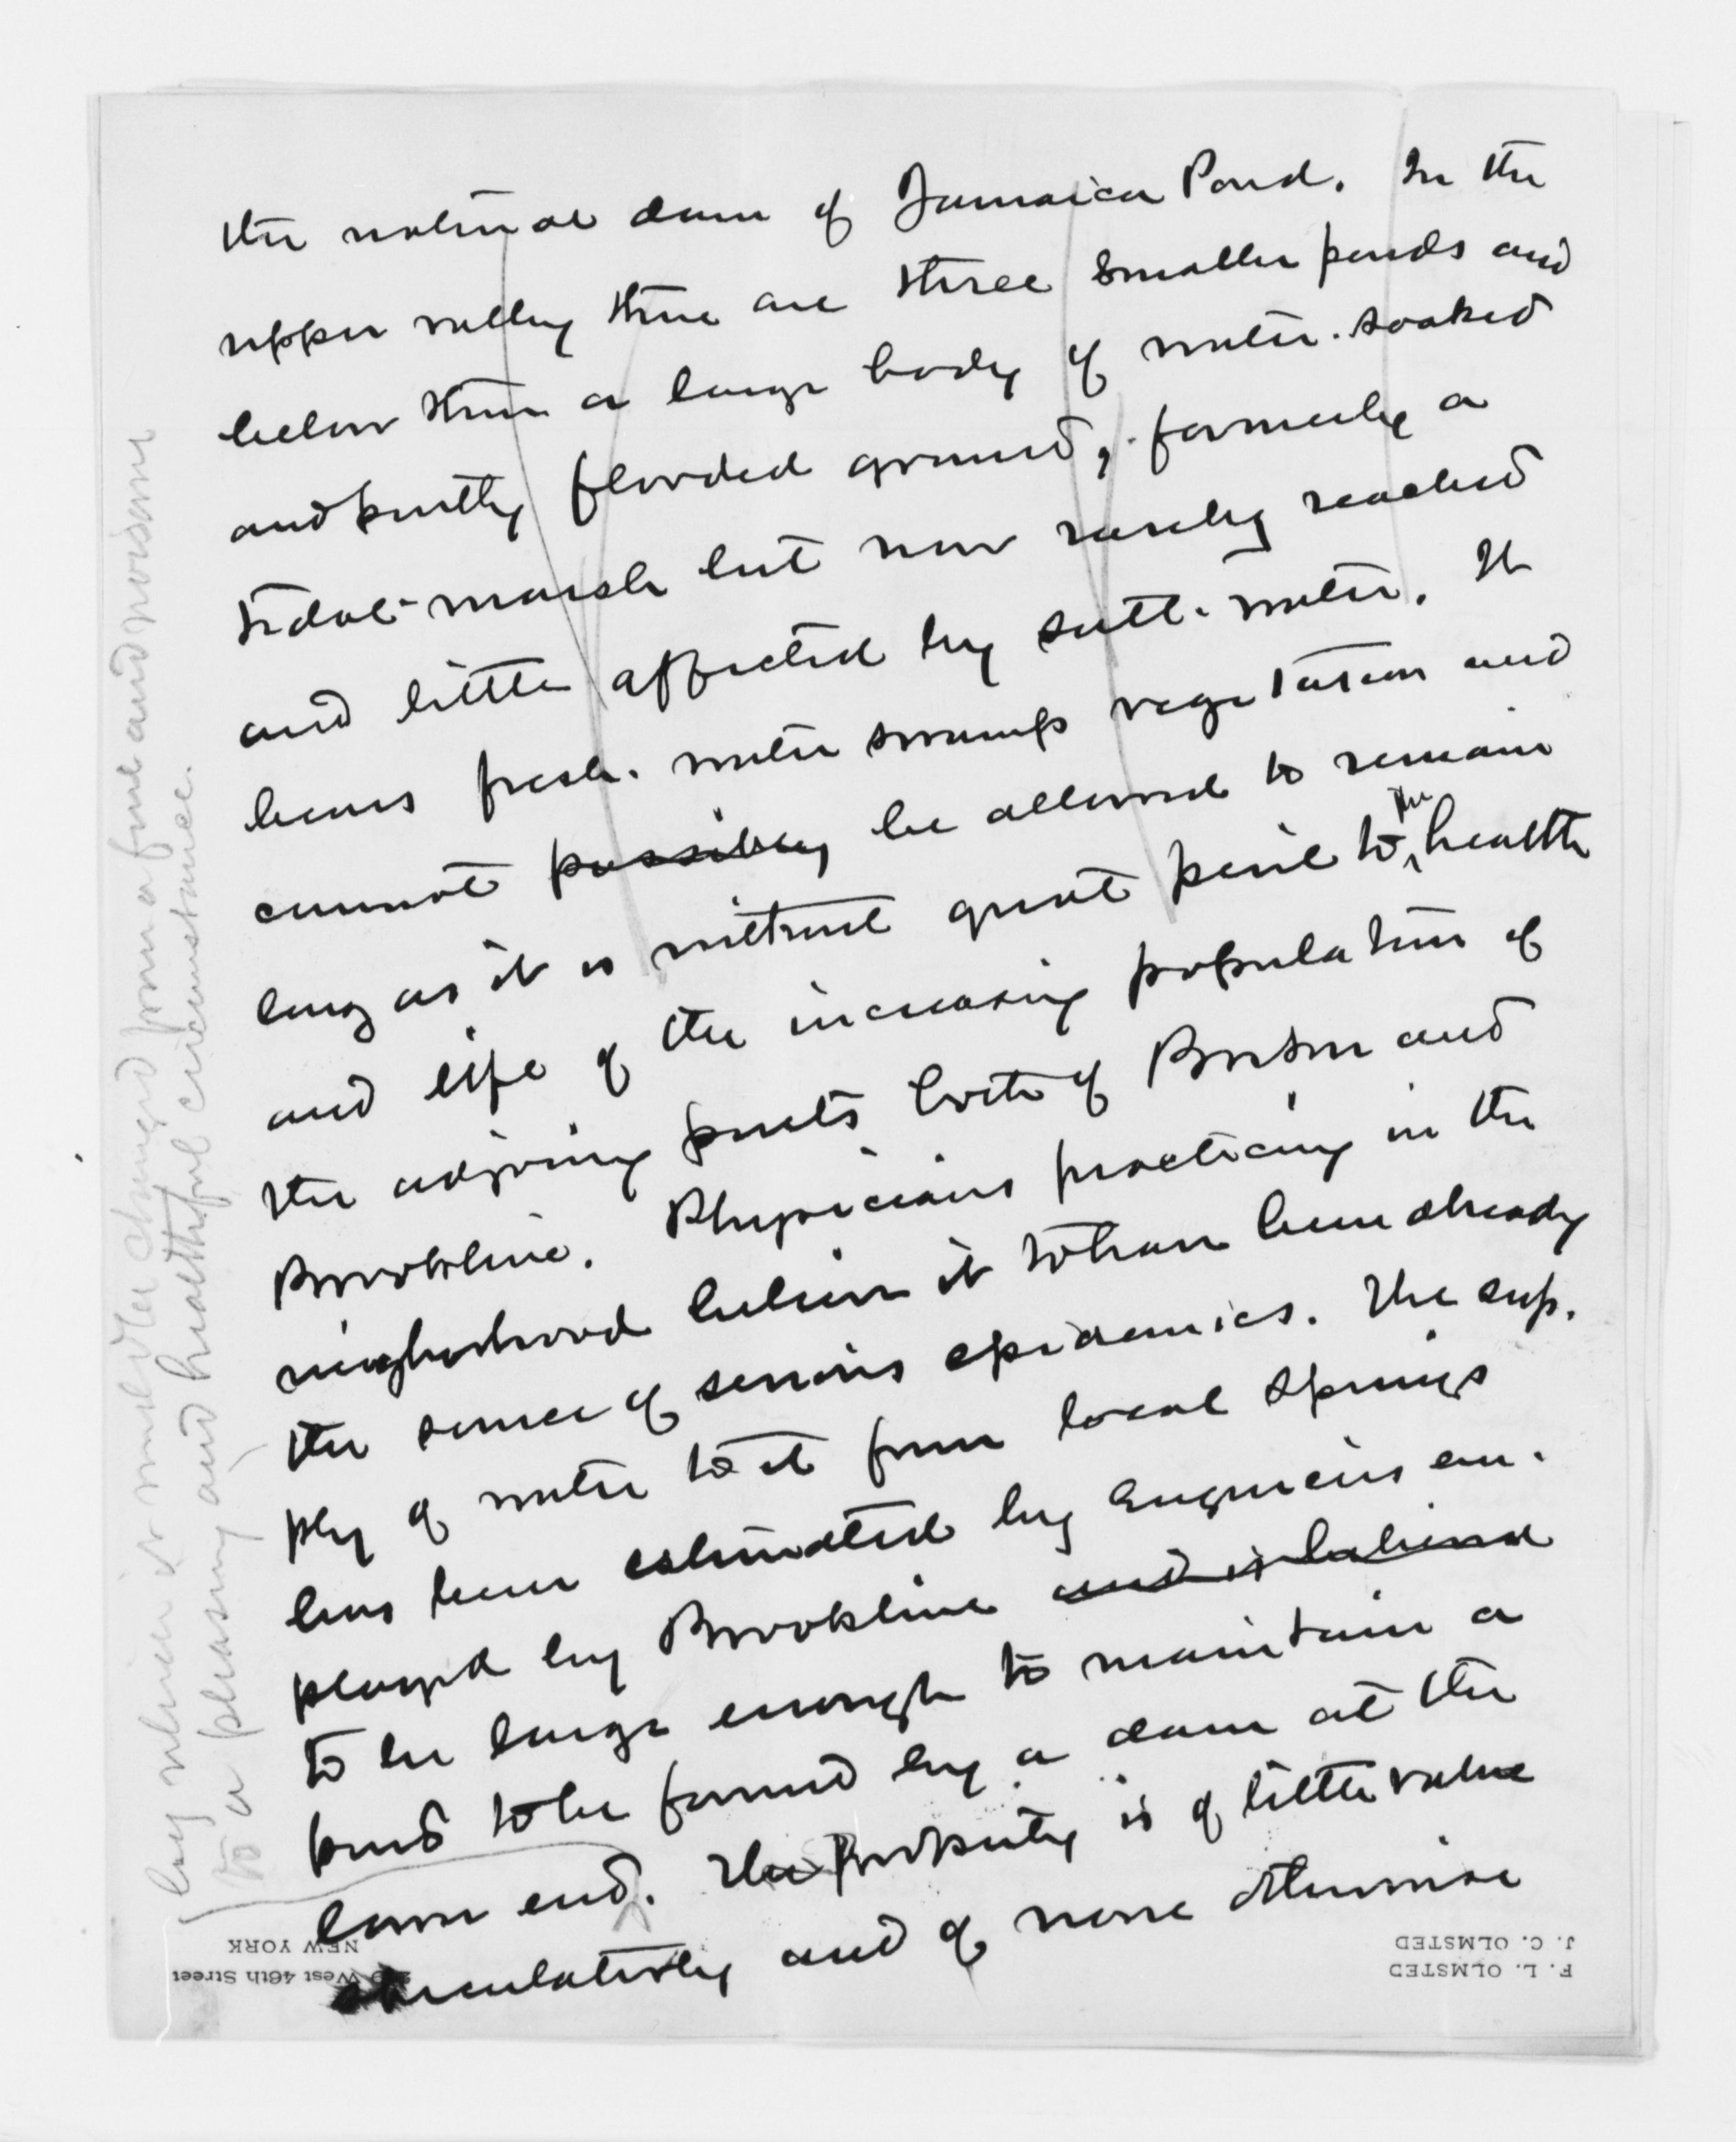 the natural dam of Jamaica Pond. In the
upper valley there are three smaller ponds and
below them a large body of water-soaked
and partly flooded ground, formerly a
tidal-marsh but now rarely reached
and little affected by salt-water. It
bears fresh-water swamp vegetation and
cannot possibly be allowed to remain
long as it is without great peril to the health
and life of the increasing population of
the adjoining parts both of Boston and
Brookline. Physicians practicing in the
neighborhood believe it to have been already
the source of serious epidemics. The sup-
ply of water to it from local springs
has been estimated by Engineers em-
ployed by Brookline and is believed
to be large enough to maintain a
pond to be formed by a dam at the
lower end. The property is of little value
speculatively and of none otherwise
by which it would be changed from a foul and noisome
to a pleasing and healthful circumstance.
F. L. OLMSTED
J. C. OLMSTED
209 West 46th Street
NEW YORK